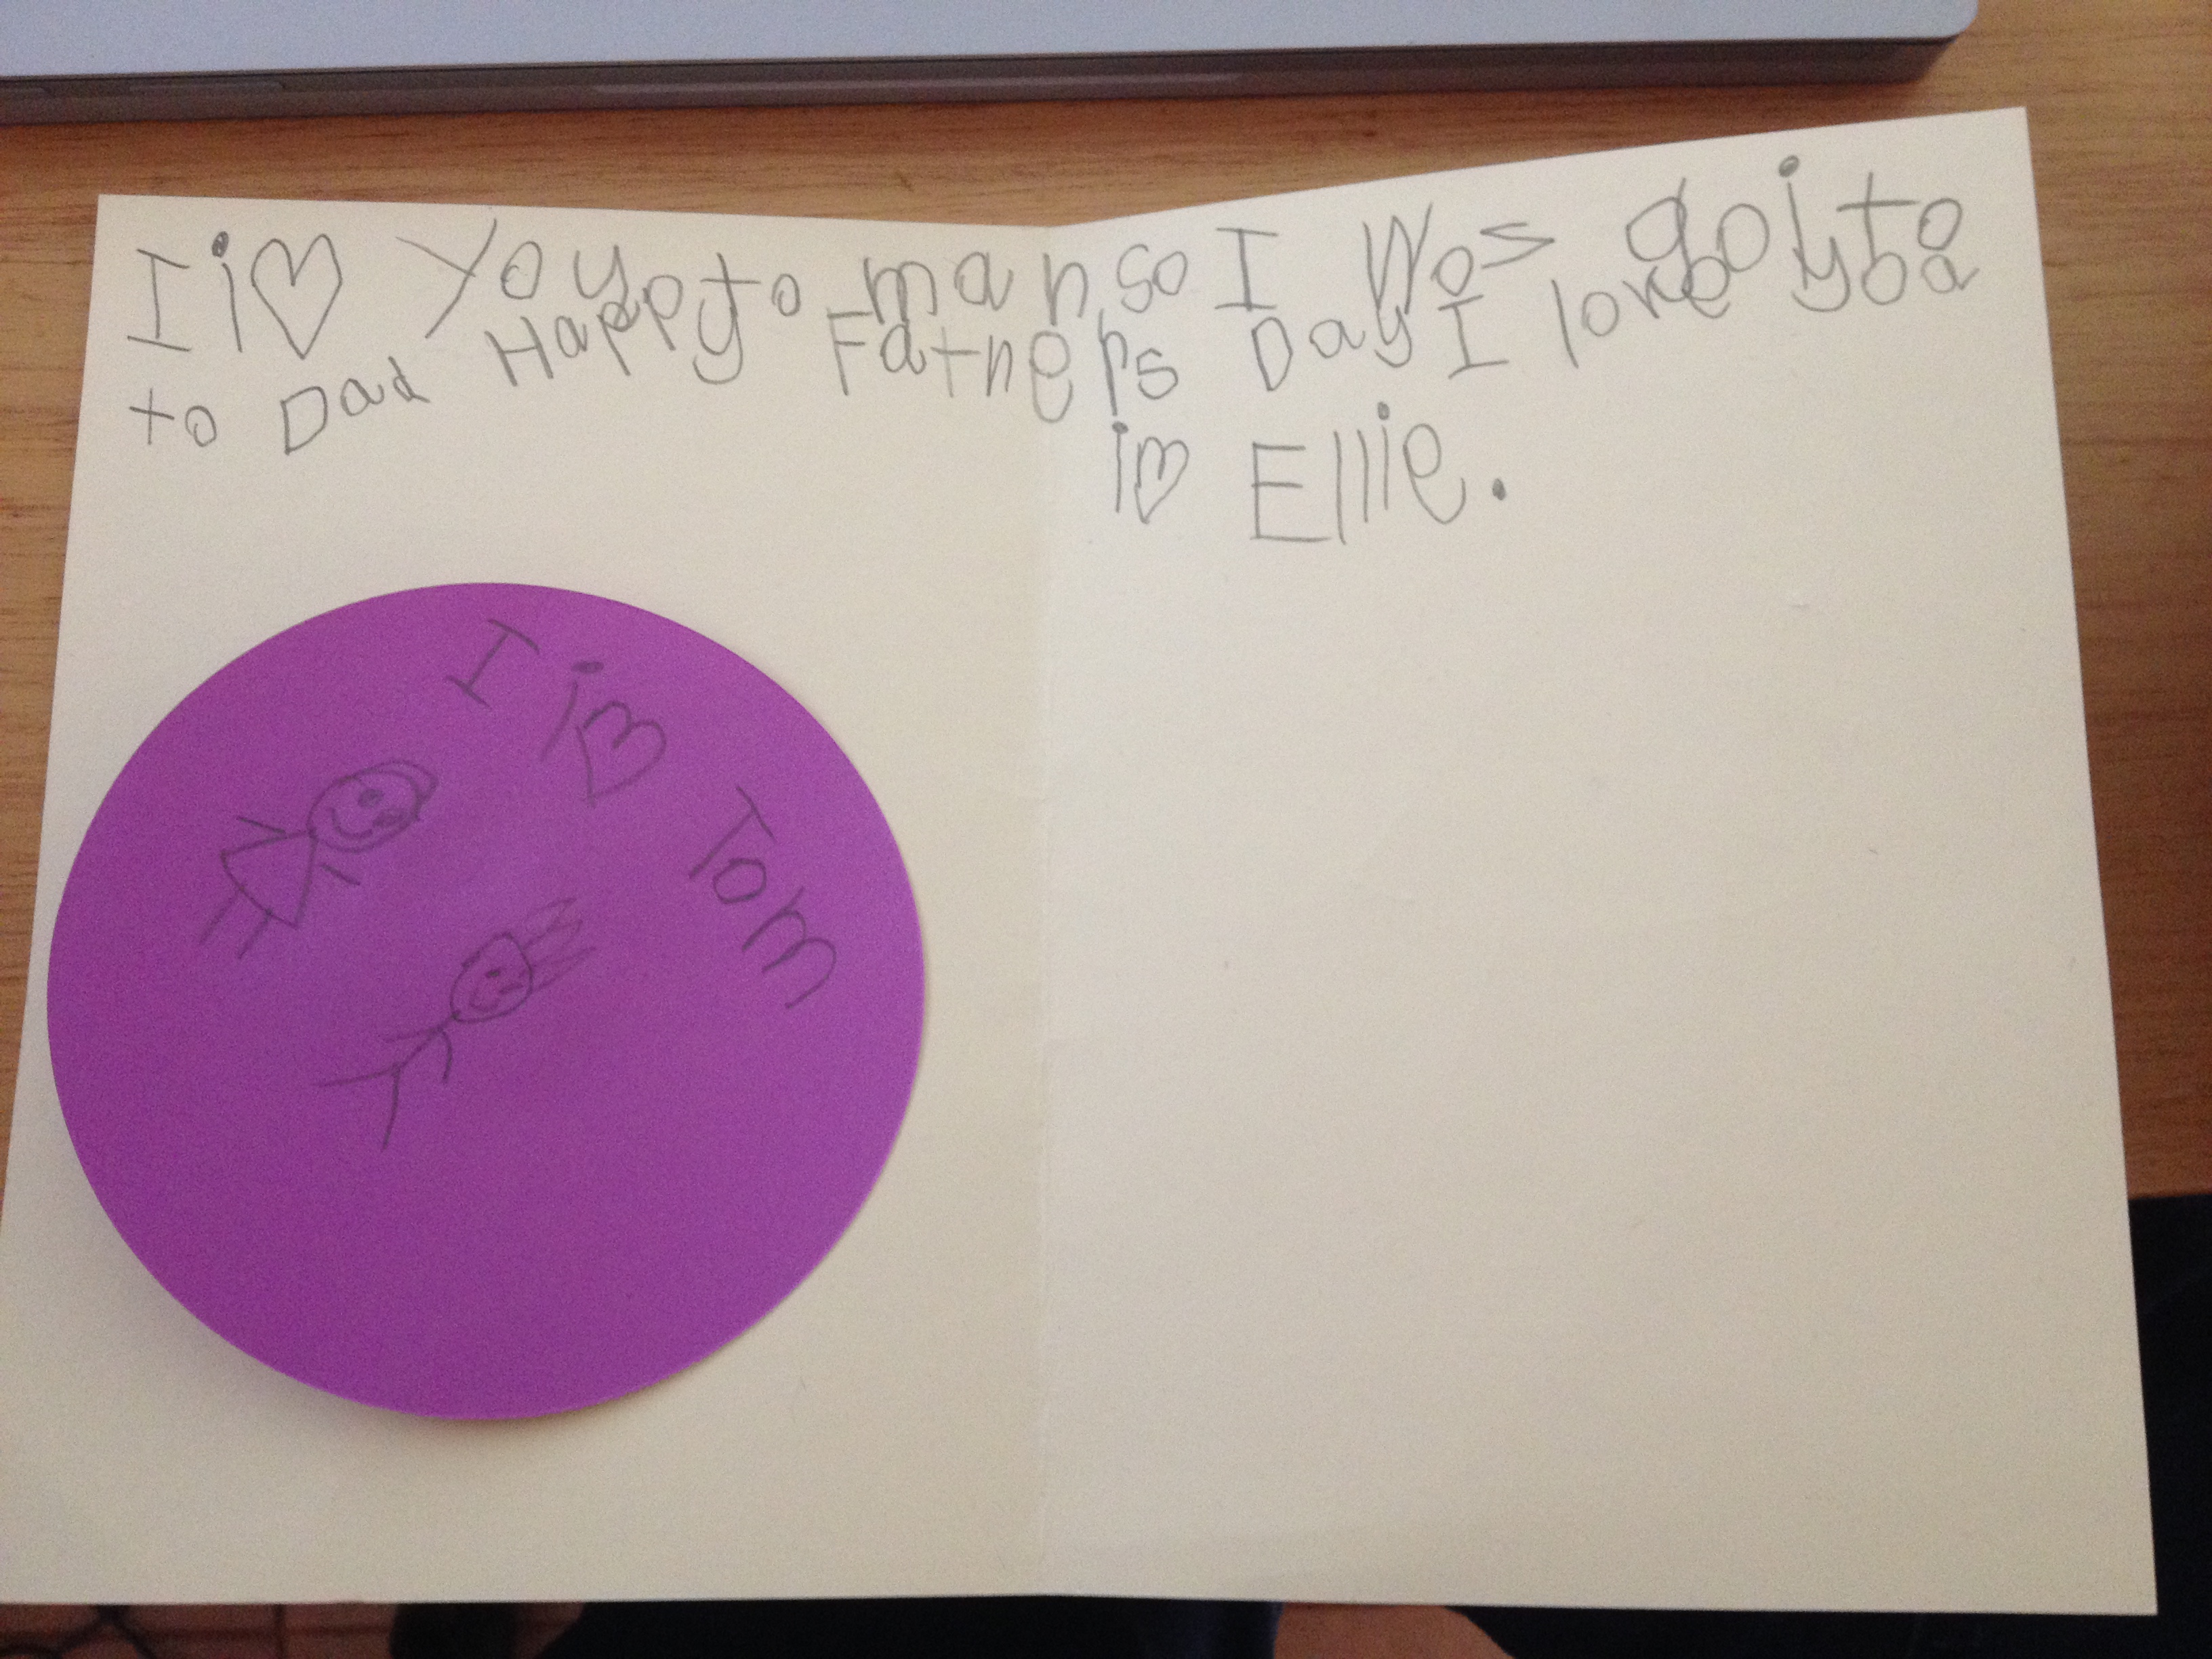 I i♡ You to man so I Wos goi to
to Dad Happy Fatners Day I love you a
i♡ Ellie.
I i♡ Tom